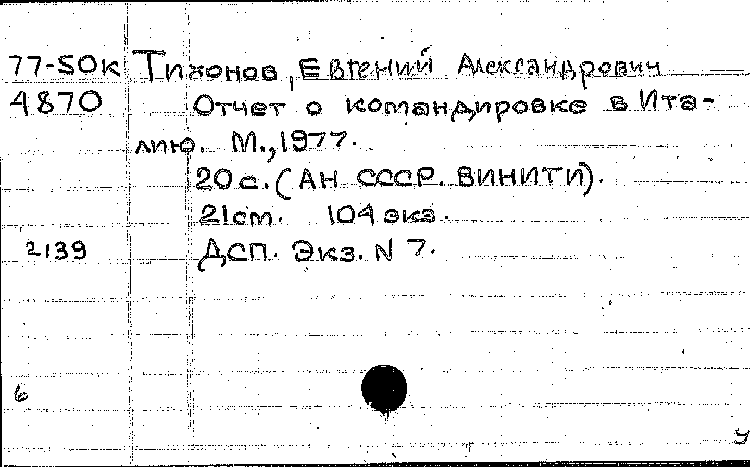 77-50к Тихонов, Евгений Александрович
4870 Отчет о командировке в Ита-
лию. М., 1977.
20 с. (АН СССР. ВИНИТИ).
21 см. 104 экз.
2139 ДСП. Экз. N 7.
6
У